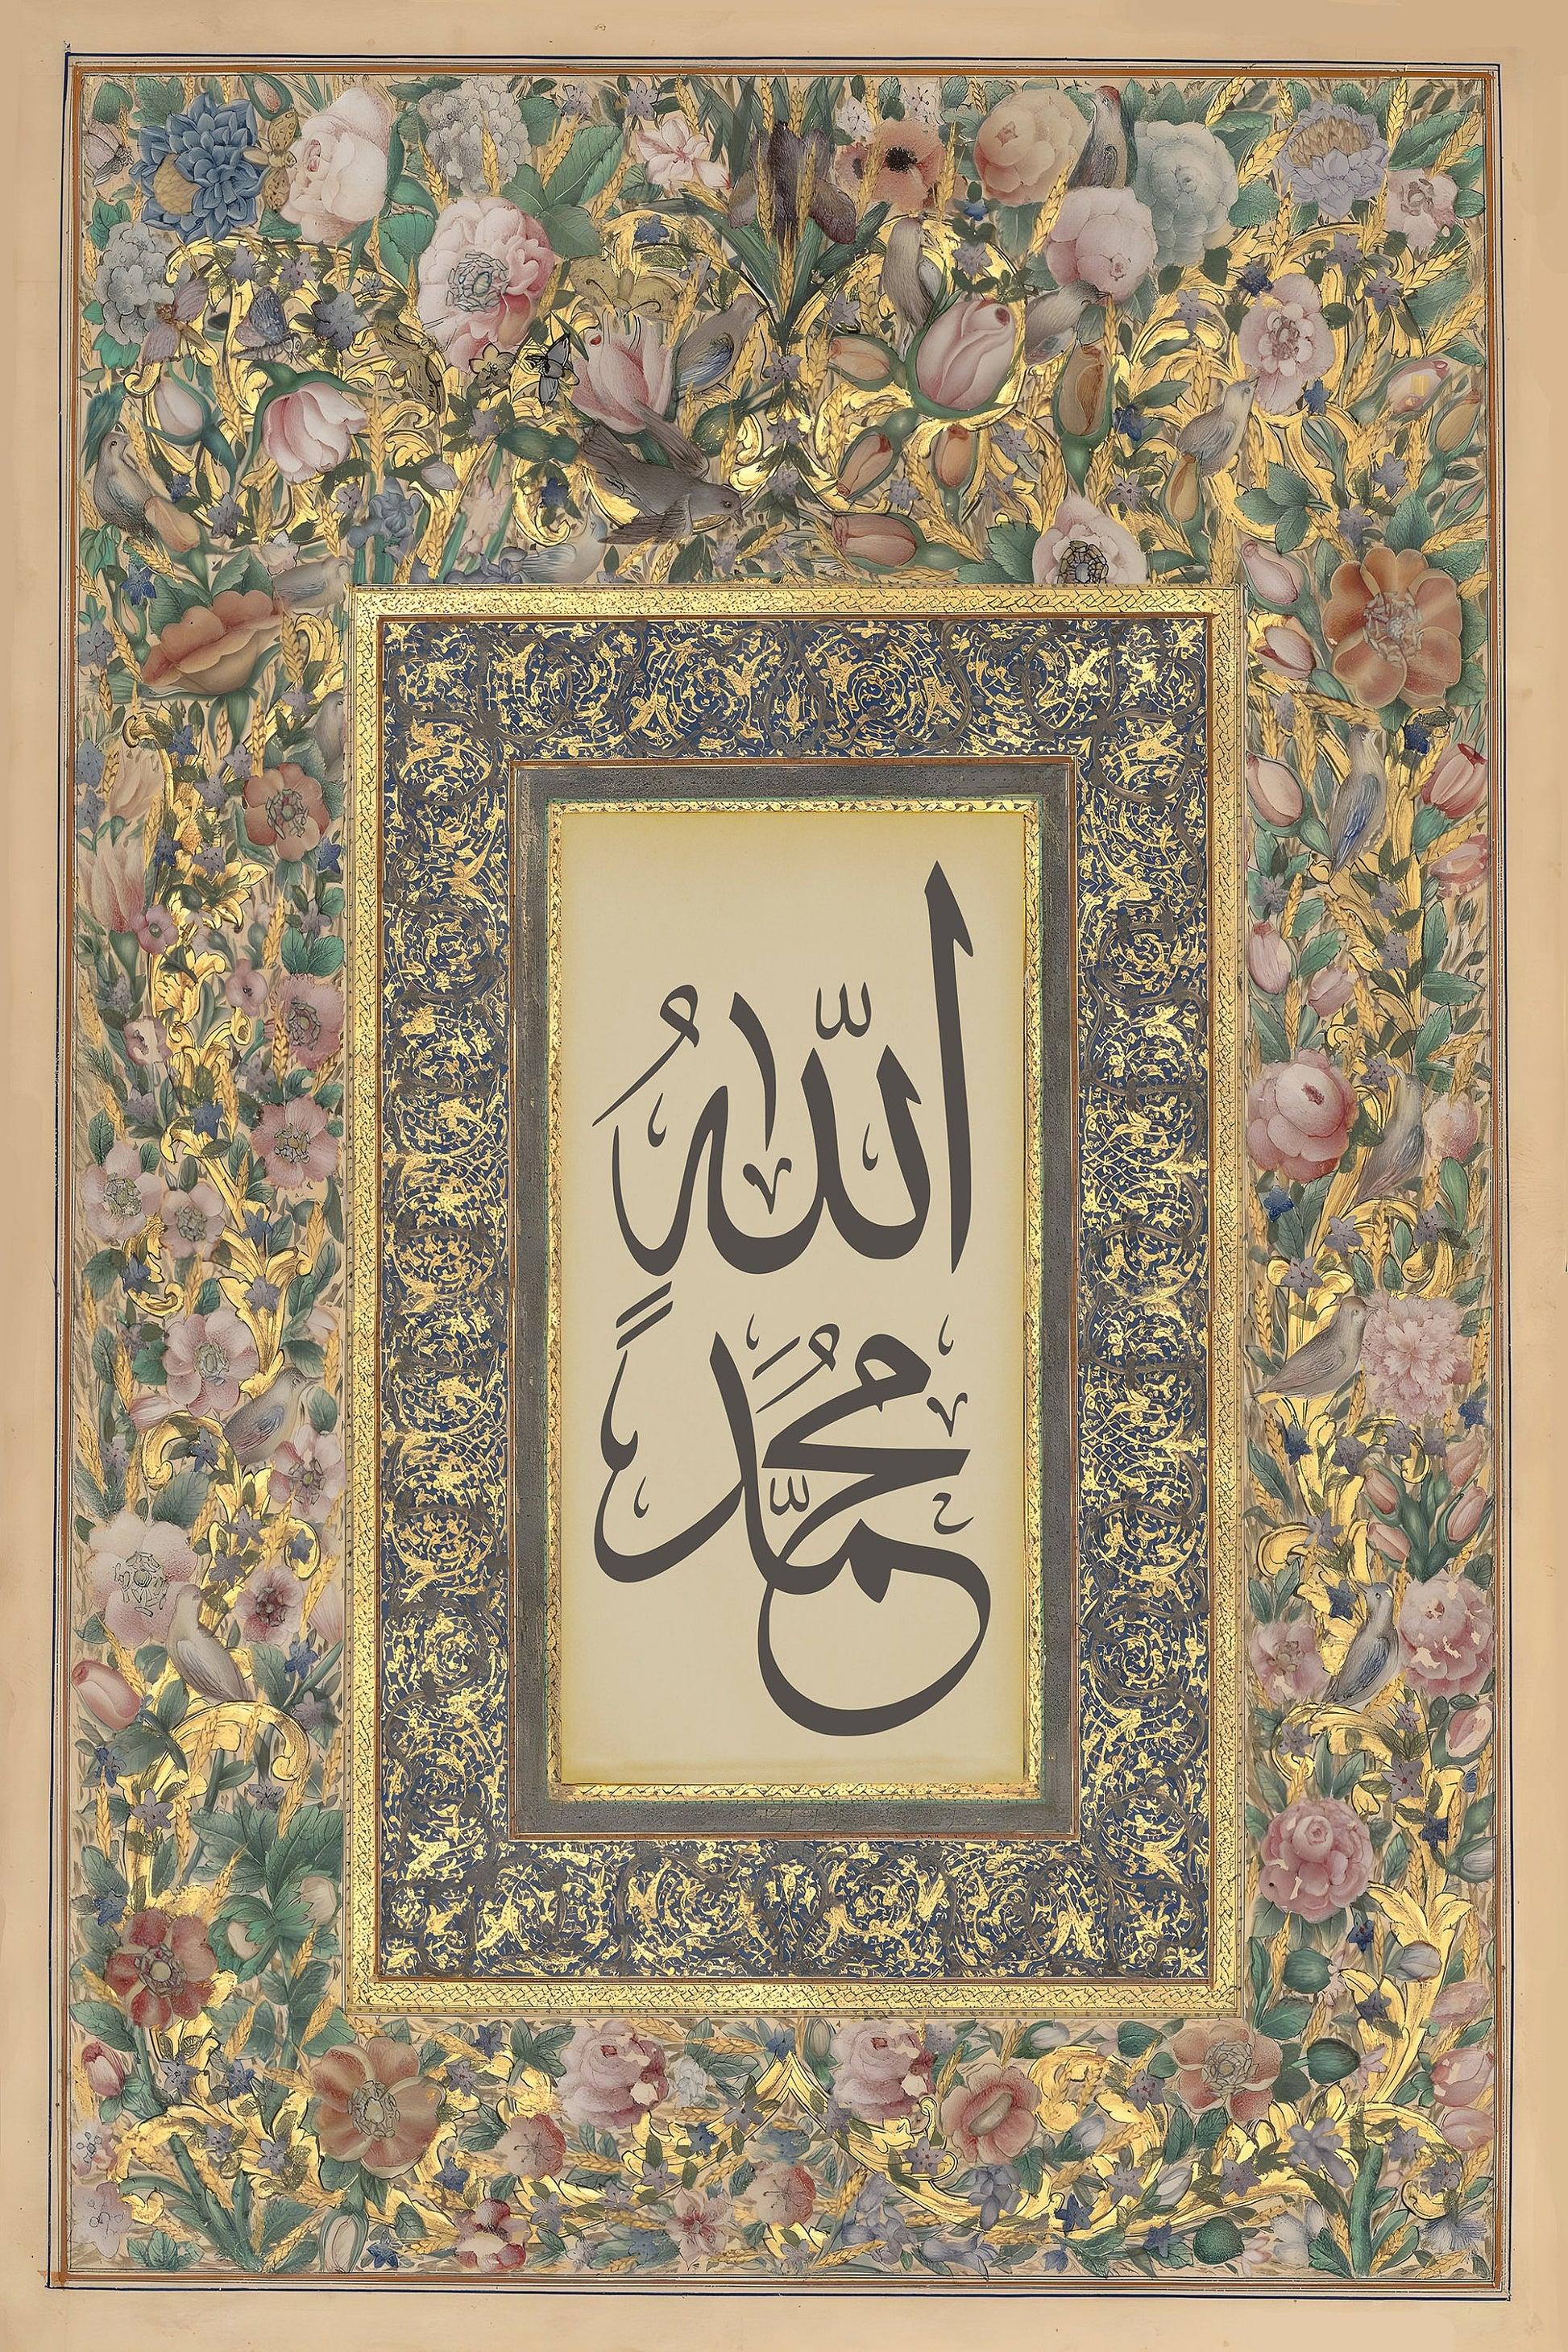 اللهُ
محمدٌ